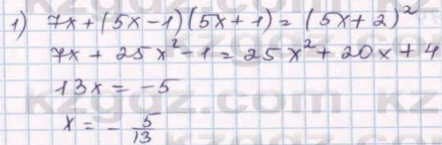 1) 7x + (5x - 1)(5x + 1) = (5x + 2)²
7x + 25x² - 1 = 25x² + 20x + 4
13x = -5
x = - 5/13